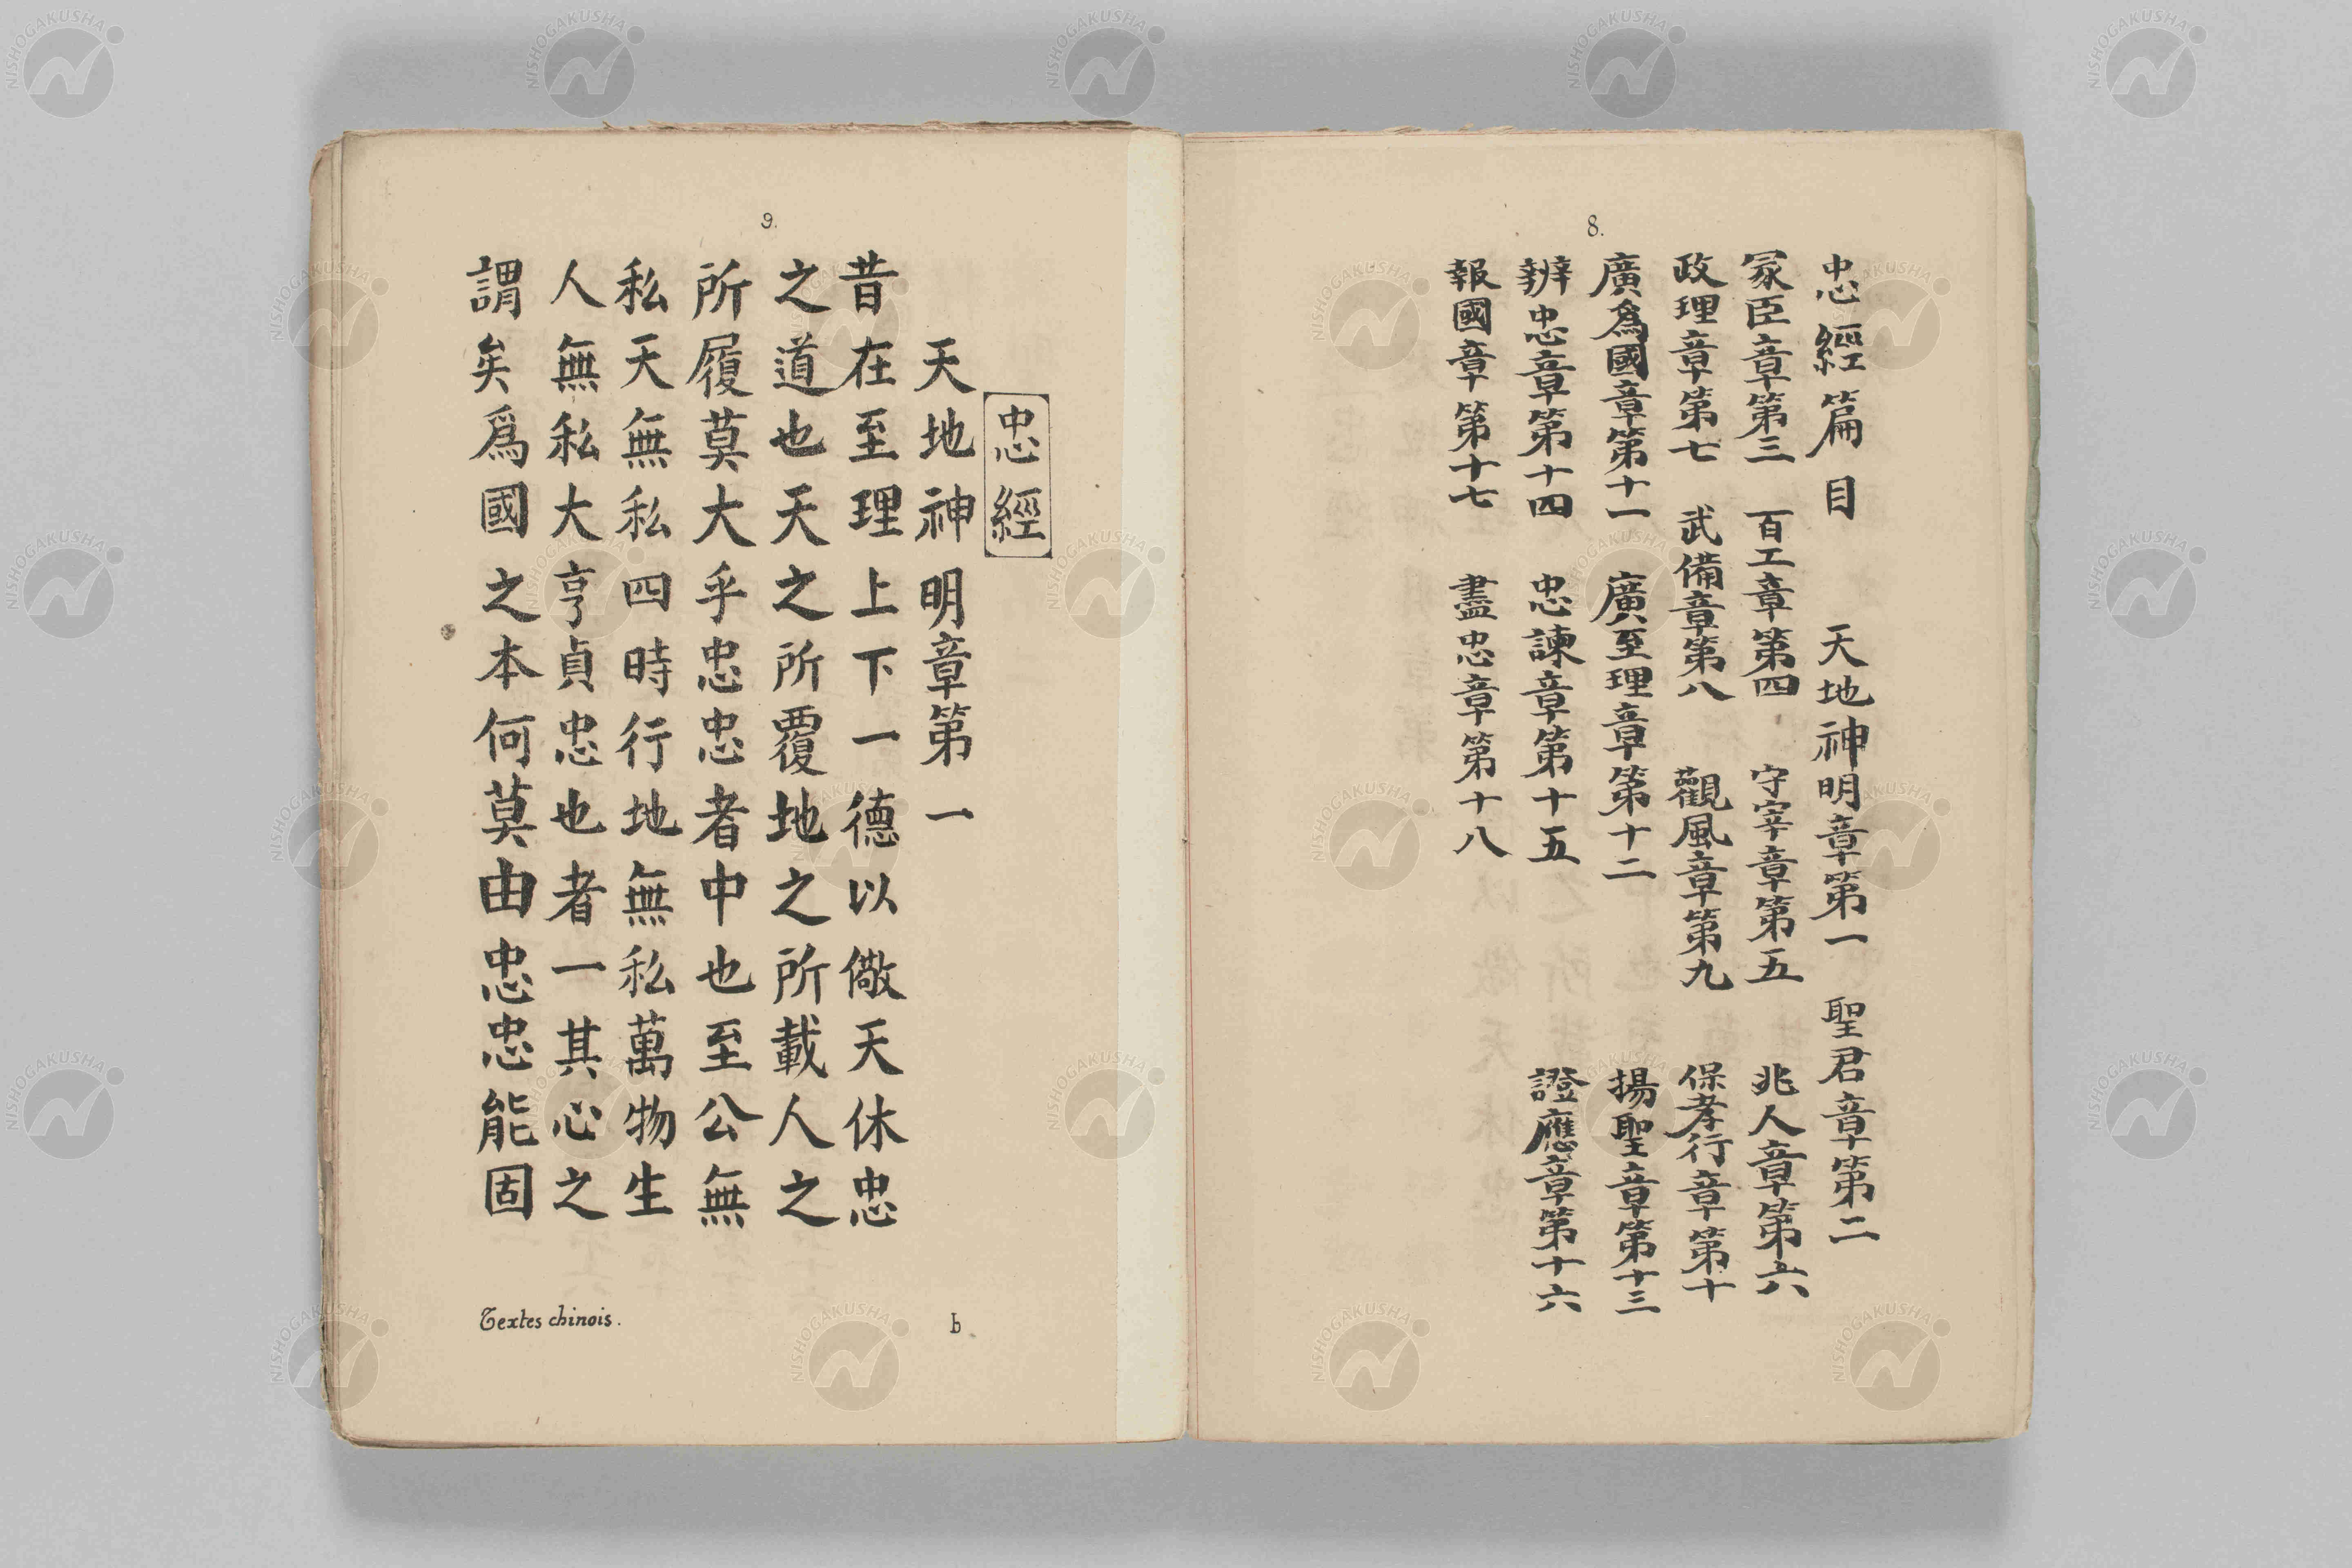 8.
忠經篇目 天地神明章第一 聖君章第二
冢臣章第三 百工章第四 守宰章第五 兆人章第六
政理章第七 武備章第八 觀風章第九 保孝行章第十
廣爲國章第十一 廣至理章第十二 揚聖章第十三
辨忠章第十四 忠諫章第十五 證應章第十六
報國章第十七 盡忠章第十八
9.
忠經
天地神明章第一
昔在至理上下一德以儆天休忠
之道也天之所覆地之所載人之
所履莫大乎忠忠者中也至公無
私天無私四時行地無私萬物生
人無私大亨貞忠也者一其心之
謂矣爲國之本何莫由忠忠能固
Textes chinois.
b
NISHOGAKUSHA